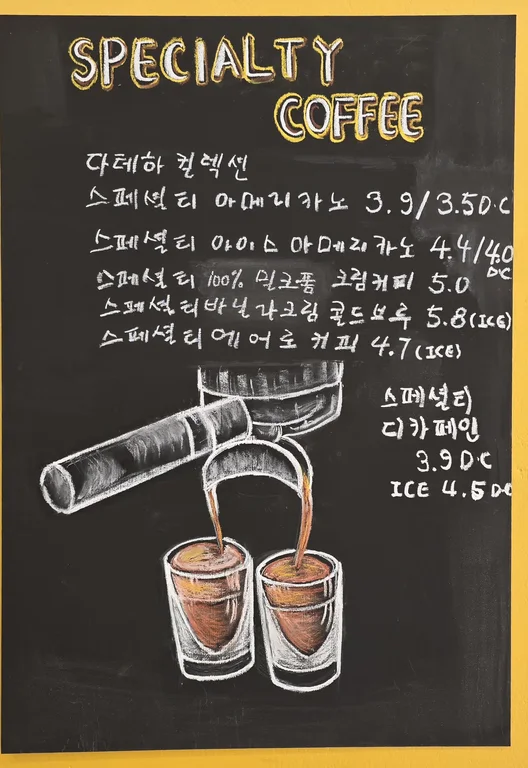 SPECIALTY
COFFEE
다테하 컬렉션
스페셜티 아메리카노 3.9/3.5 D.C
스페셜티 아이스 아메리카노 4.4/4.0 DC
스페셜티 100% 밀크폼 크림커피 5.0
스페셜티 바닐라크림 콜드브루 5.8 (ICE)
스페셜티 에어로 커피 4.7 (ICE)
스페셜티
디카페인
3.9 D.C
ICE 4.5 DC